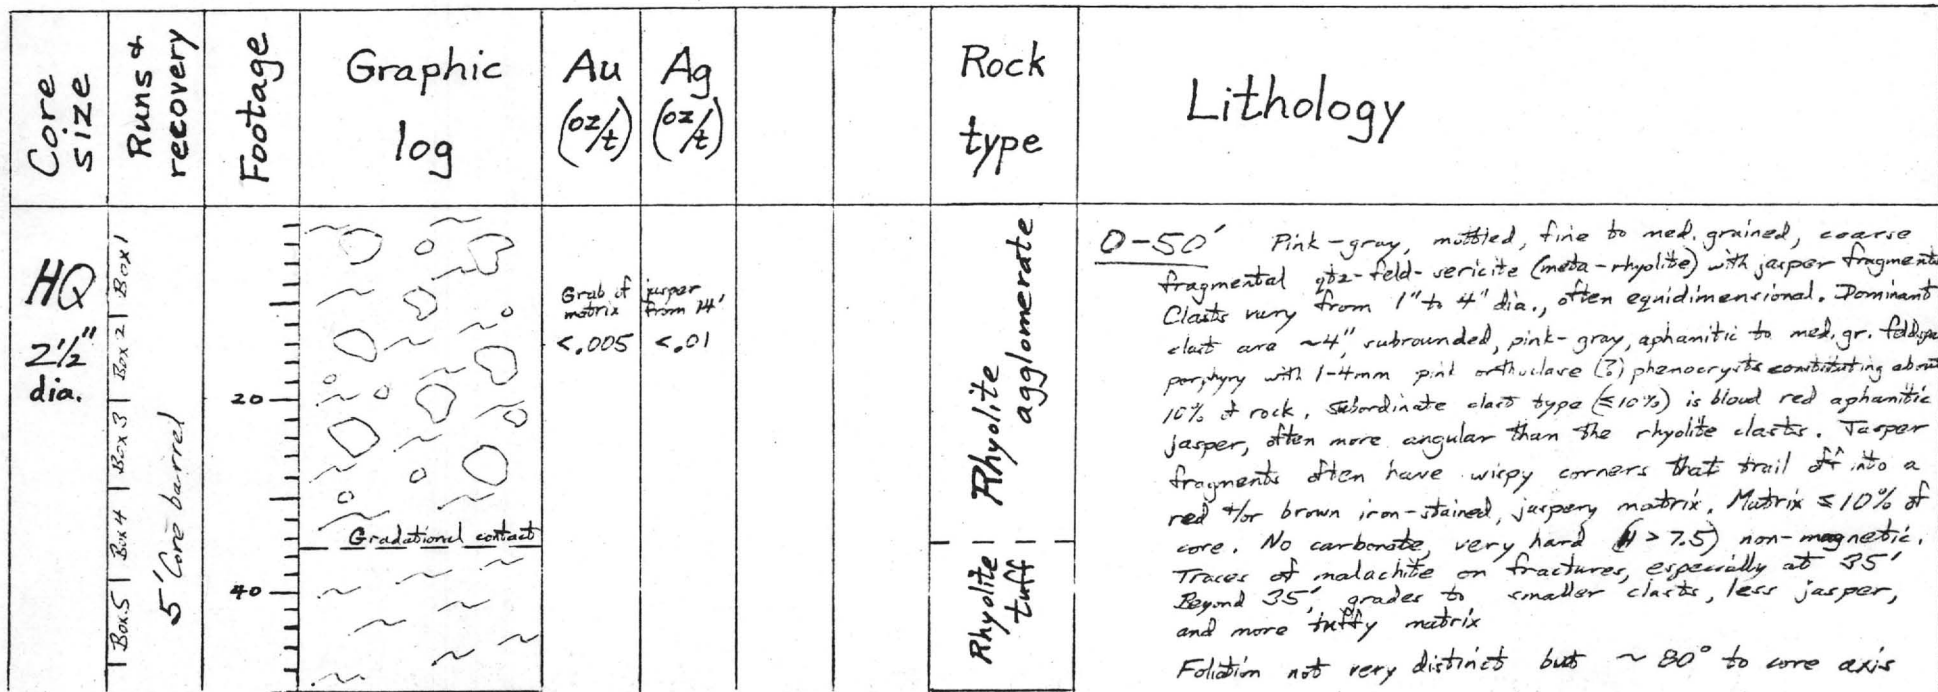 Core
size
Runs &
recovery
Footage
Graphic
log
Au
(oz/t)
Ag
(oz/t)
Rock
type
Lithology
HQ
2½"
dia.
Box 1
Box 2
Box 3
Box 4
Box 5
5' Core barrel
20
40
Gradational contact
Grab of jasper
matrix from 14'
<.005 <.01
Rhyolite
agglomerate
Rhyolite
tuff
0-50' Pink-gray, mottled, fine to med. grained, coarse
fragmental qtz-feld-sericite (meta-rhyolite) with jasper fragments
Clasts vary from 1" to 4" dia., often equidimensional. Dominant
clast are ~4", subrounded, pink-gray, aphanitic to med. gr. feldspar
porphyry with 1-4mm pink orthoclase (?) phenocrysts constituting about
10% of rock. Subordinate clast type (≤10%) is blood red aphanitic
jasper, often more angular than the rhyolite clasts. Jasper
fragments often have wispy corners that trail off into a
red +/or brown iron-stained, jaspery matrix. Matrix ≤10% of
core. No carbonate, very hard (H > 7.5) non-magnetic.
Traces of malachite on fractures, especially at 35'
Beyond 35', grades to smaller clasts, less jasper,
and more tuffy matrix
Foliation not very distinct but ~80° to core axis